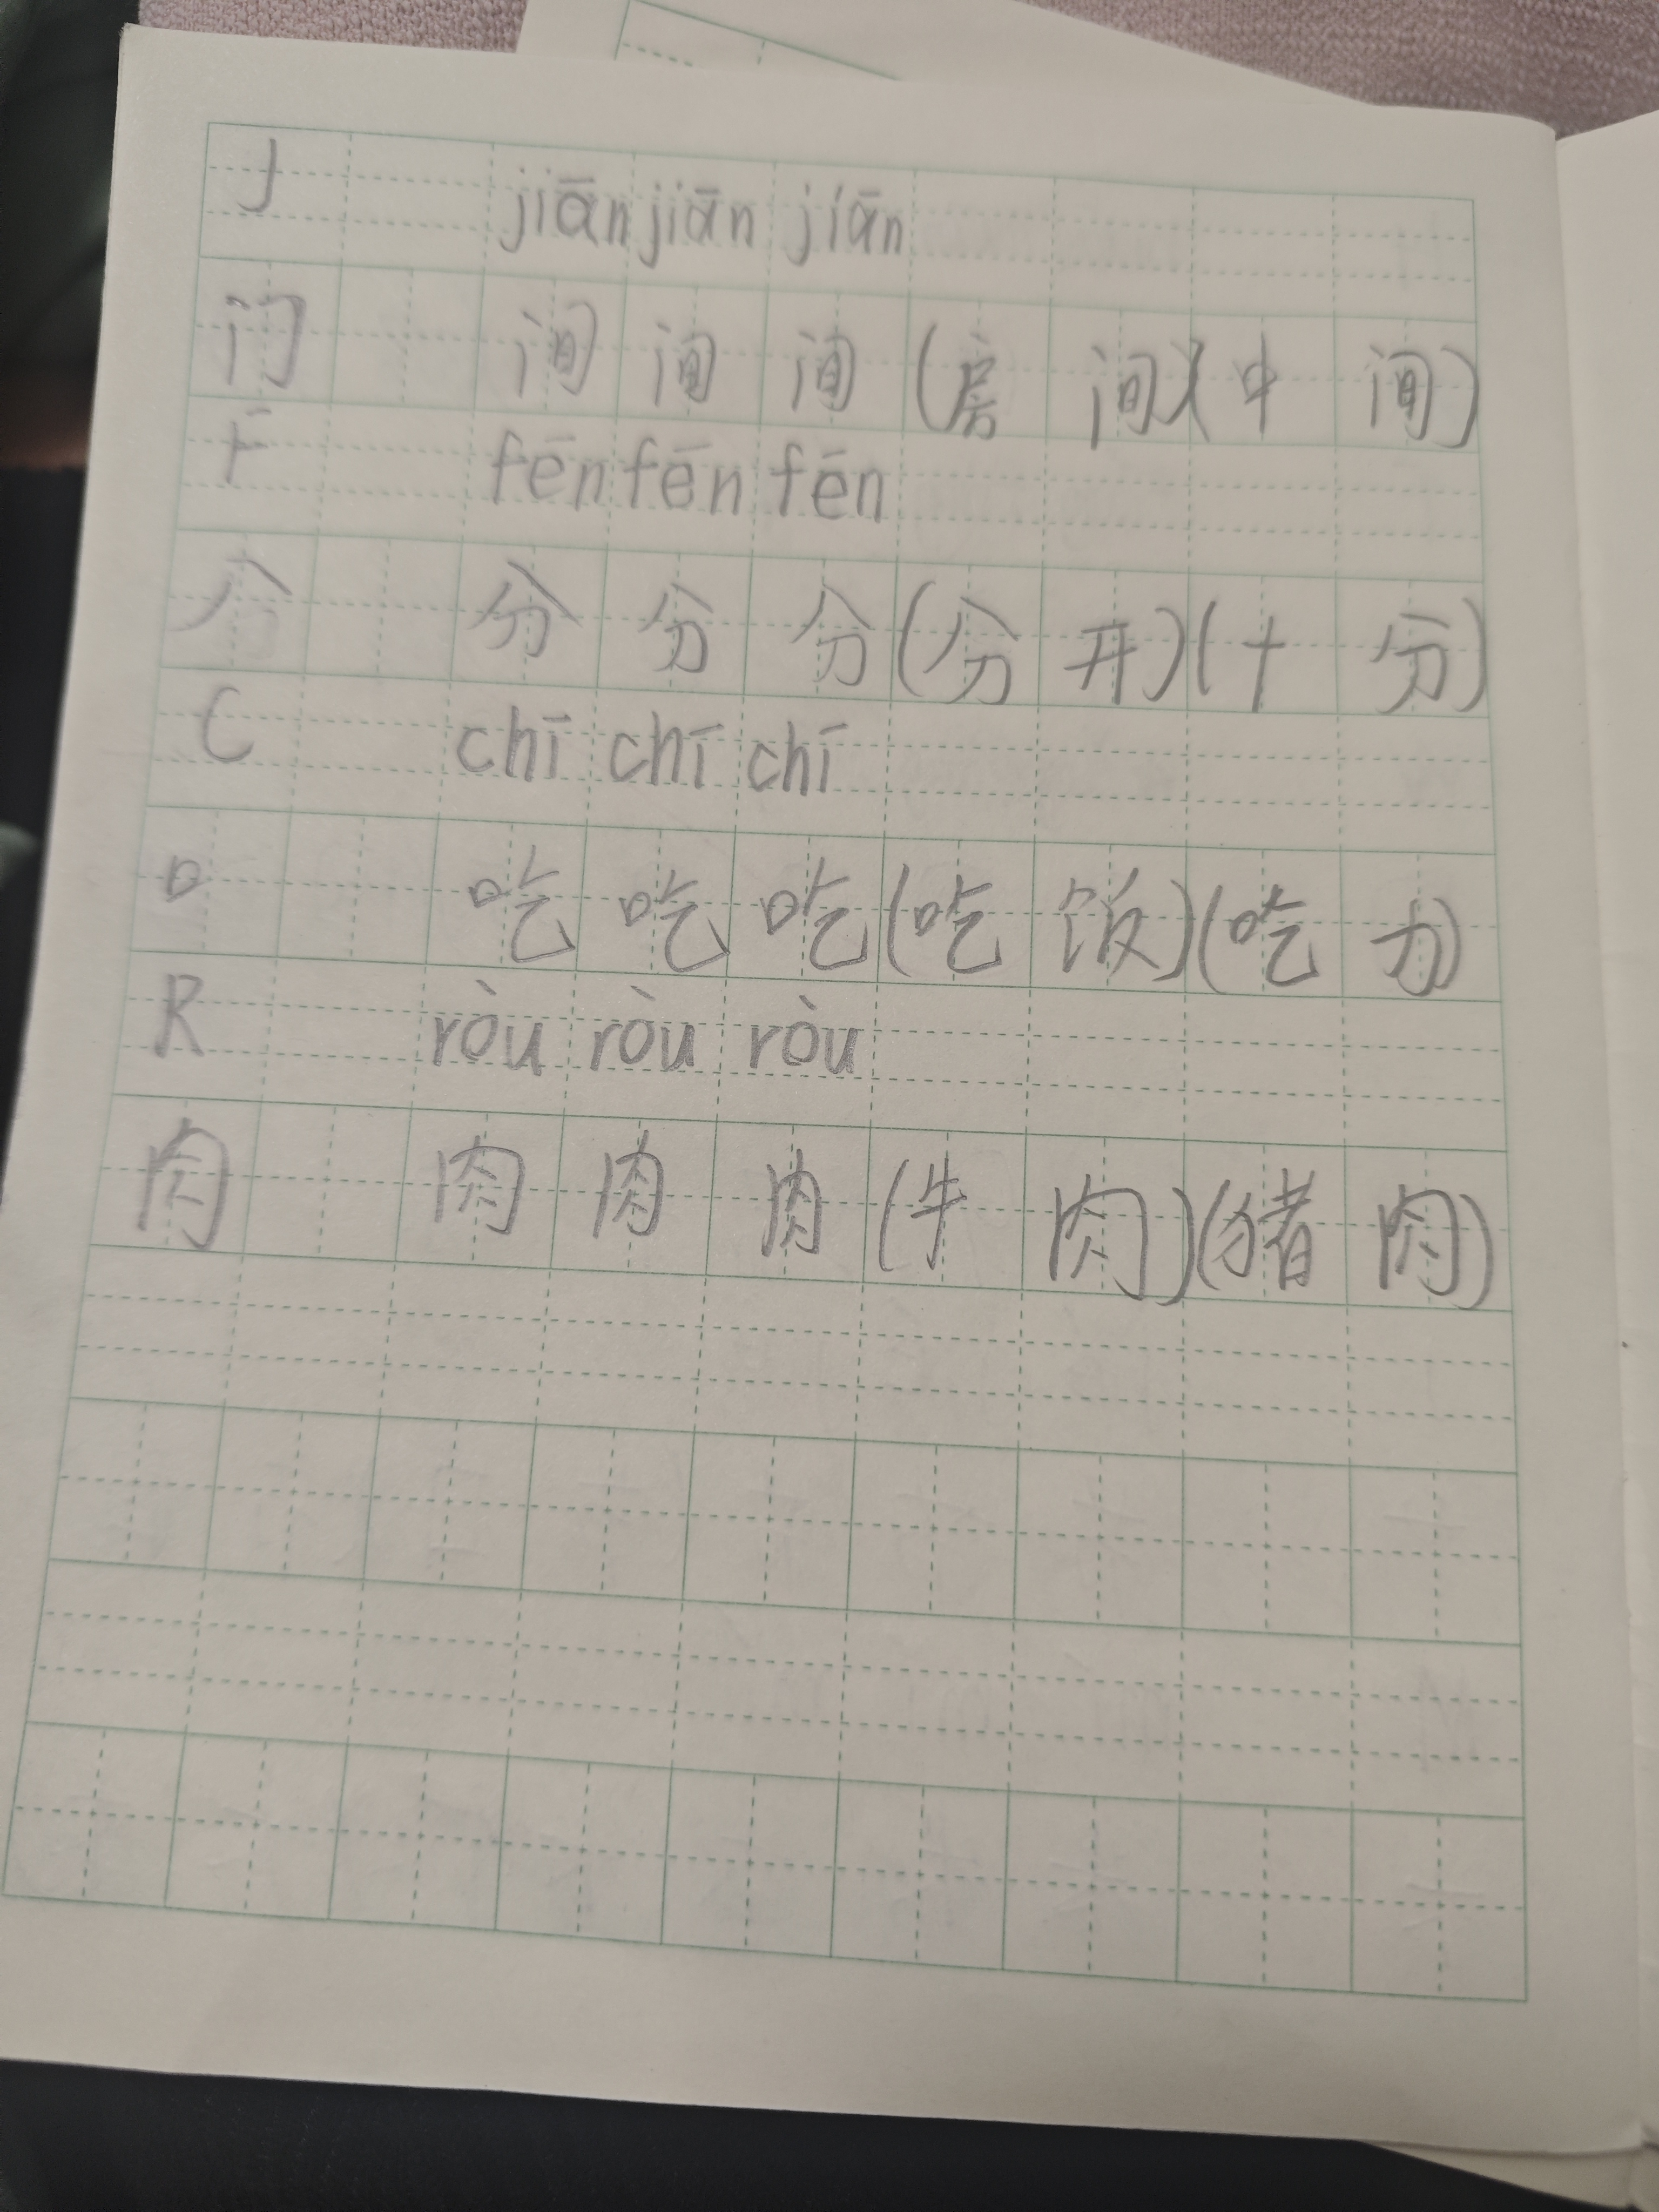 J jiān jiān jiān
门 间 间 间 (房间)(中间)
F fēn fēn fēn
八 分 分 分 (分开)(十分)
C chī chī chī
口 吃 吃 吃 (吃饭)(吃力)
R ròu ròu ròu
肉 肉 肉 肉 (牛肉)(猪肉)